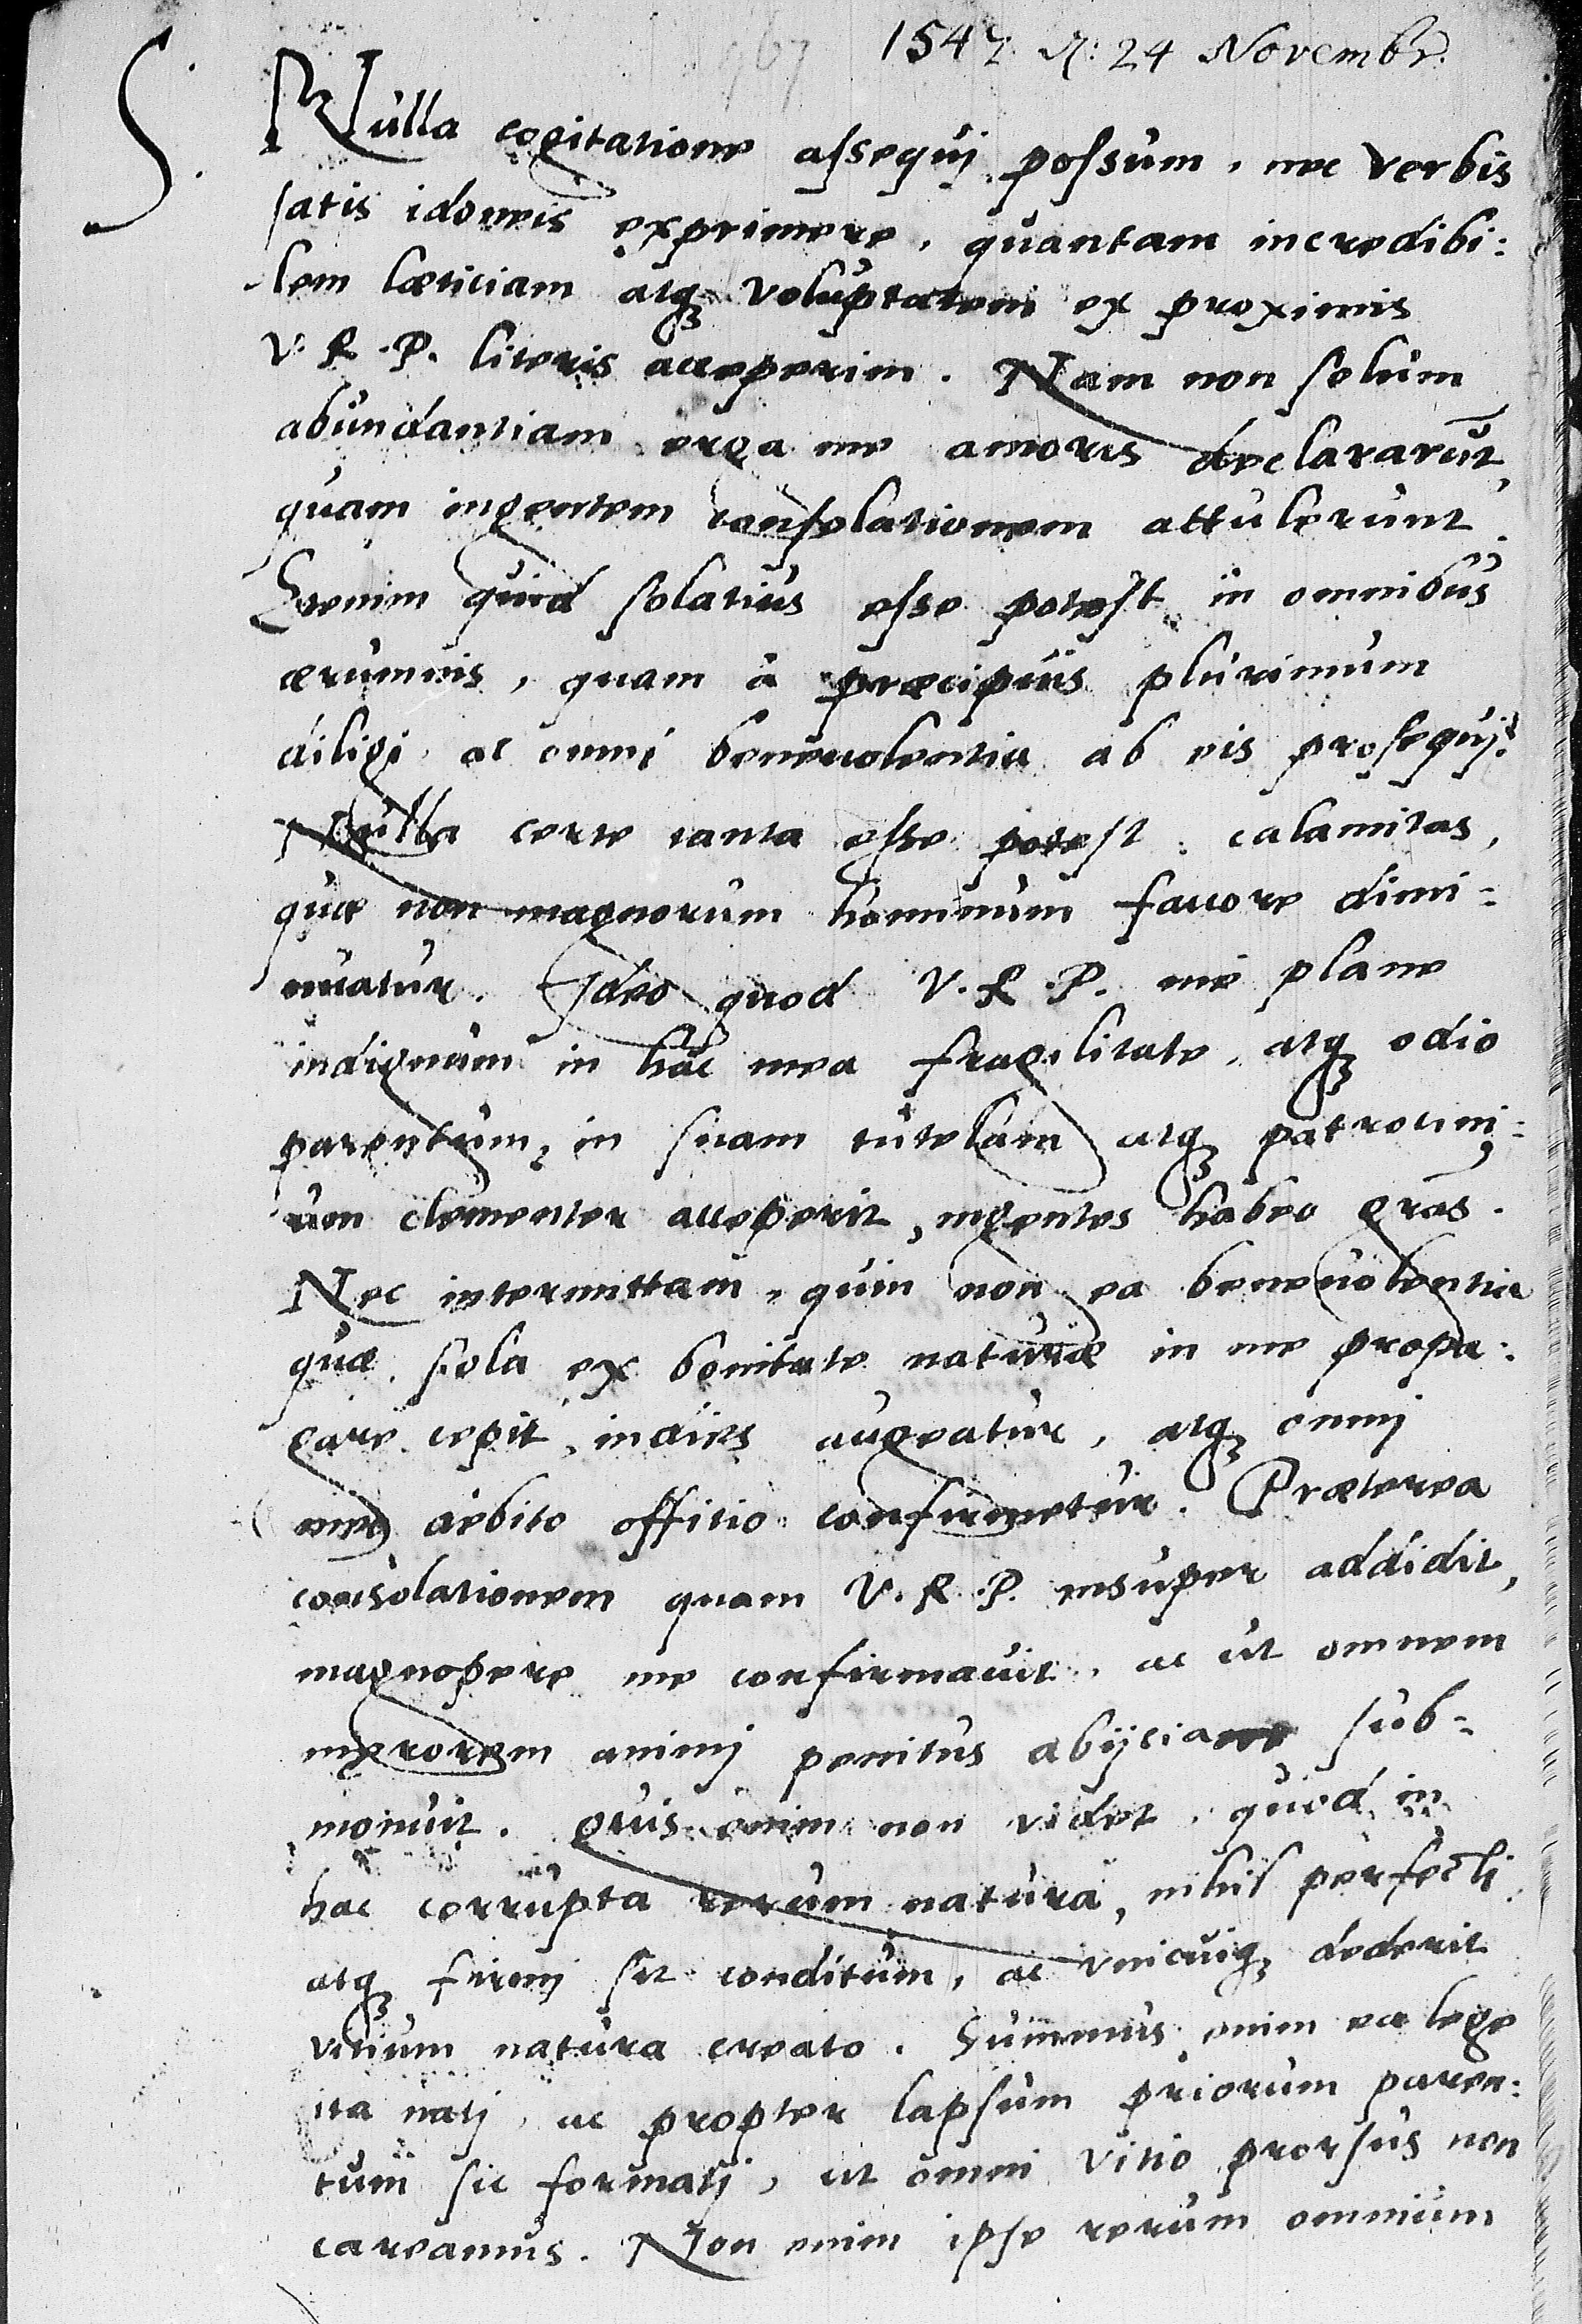 1547. d: 24 Novembr.
S. Nulla cogitatione assequij possum, nec verbis
satis idoneis exprimere, quantam incredibi:
lem lætitiam atq₃ voluptatem ex proximis
V. R. P. literis acceperim. Nam non solum
abundantiam erga me amoris declararūt,
quam ingentem consolationem attulerunt.
Etenim quid solatius esse potest in omnibus
ærumnis, quam à præcipuis plurimum
diligi, ac omni beneuolentia ab eis prosequij?
Nulla certe tanta esse potest calamitas,
quæ non magnorum hominum fauore dimi=
nuatur. Ideo quod V. R. P. me plane
indignum in hac mea fragilitate, atq₃ odio
parentum, in suam tutelam atq₃ patrocini:
um clementer acceperit, ingentes habeo gras.
Nec intermittam, quin non ea beneuolentia
quæ sola ex bonitate naturæ in me propa:
gare cepit, indies augeatur, atq₃ omnj
meo debito offitio confirmetur. Præterea
consolationem quam V. R. P. insuper addidit,
magnopere me confirmauit, ac ut omnem
mærorem animj penitus abijciam sub=
monuit. Quis enim non videt, quod in
hac corrupta rerum natura, nihil perfectj
atq₃ firmj sit conditum, ac vnicuiq₃ dederit
vitium natura creato. Summus enim ea lege
ita natj, ac propter lapsum priorum paren:
tum sic formatj, ut omni vitio prorsus non
careamus. Non enim ipse rerum omnium